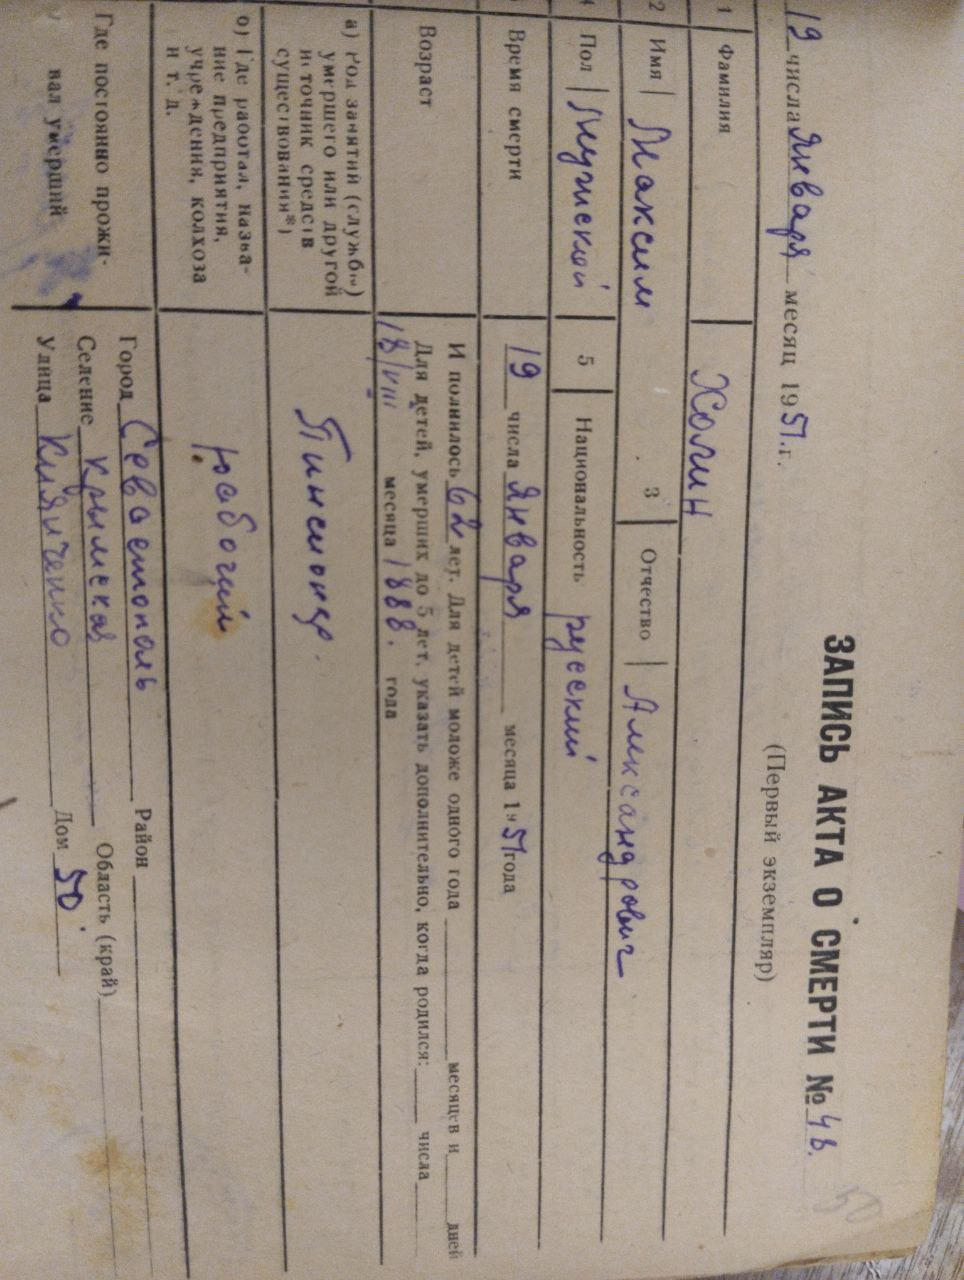 ЗАПИСЬ АКТА О СМЕРТИ №
(Первый экземпляр)
19 числа Января месяц 1951 г.
1 Фамилия Холин
2 Имя Максим 3 Отчество Александрович
4 Пол Мужской 5 Национальность русский
Время смерти 19 числа Января месяца 1951 года
Возраст
И полнилось 62 лет. Для детей моложе одного года месяцев и дней
Для детей, умерших до 5 лет, указать дополнительно, когда родился: числа
18/VIII месяца 1888. года
а) Род занятий (службы) умершего или другой источник средств существования*)
Пинсионер.
о) Где работал, назва-
ние предприятия,
учреждения, колхоза
и т. д.
рабочий
Где постоянно прожи-
вал умерший
Город Севастополь Район
Селение Крымская Область (край)
Улица Дом 50.
50